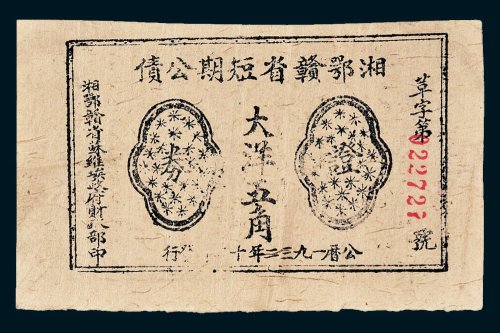 湘鄂贛省短期公債
草字第022727號
證
大洋五角
券
湘鄂贛省蘇維埃政府財政部印
公曆一九三二年十行